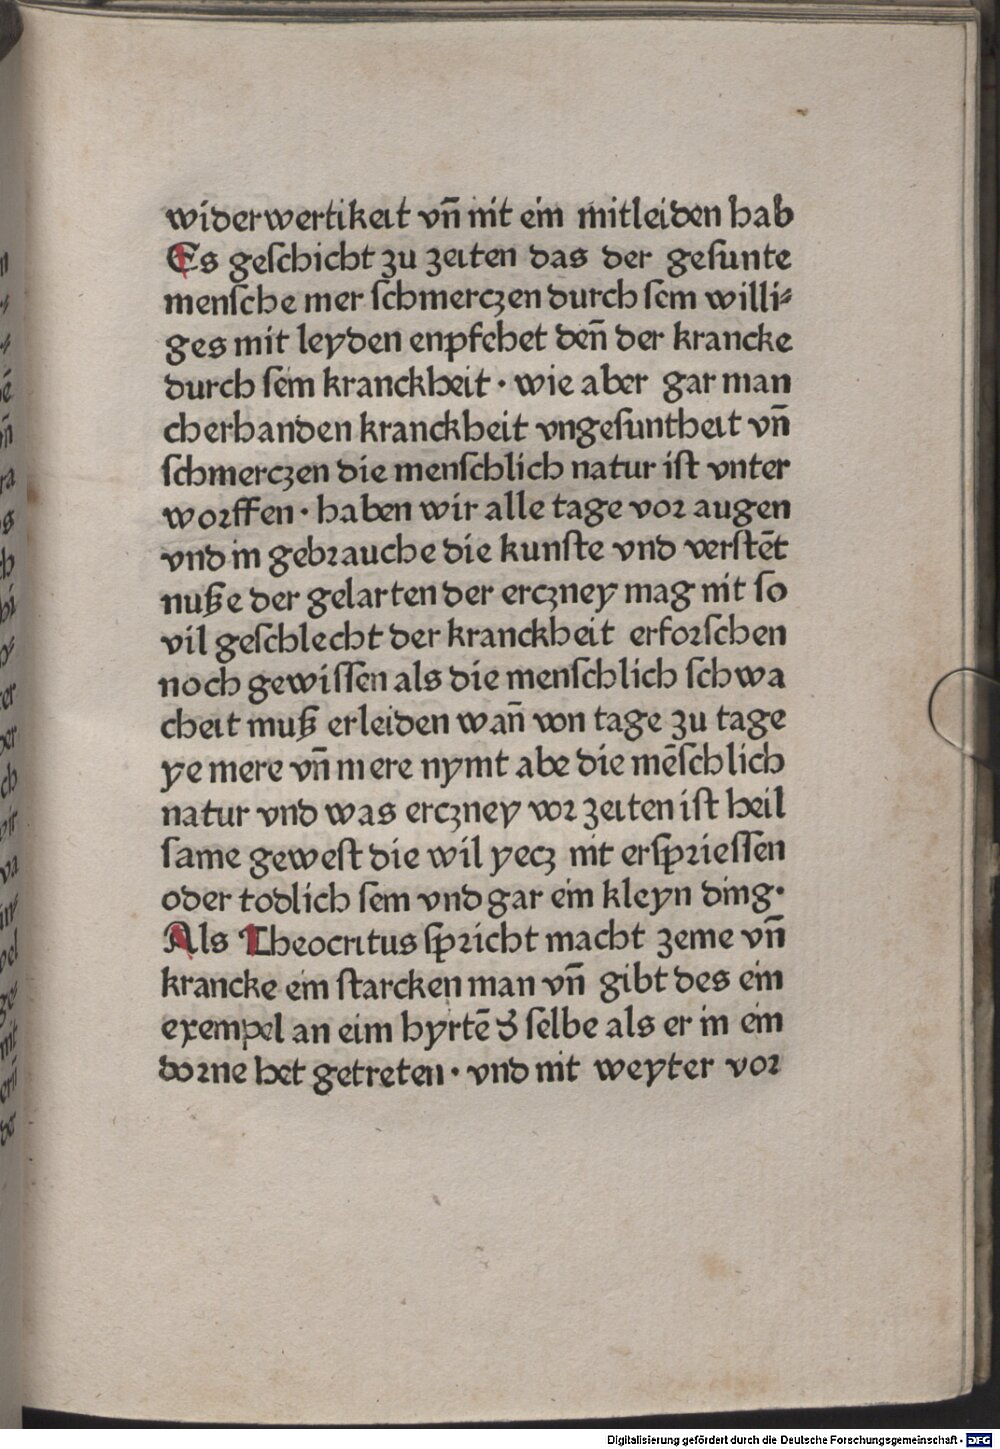 widerwertikeit vn̄ nit ein mitleiden hab
Es geſchicht zu zeiten das der geſunte
menſche mer ſchmerczen durch ſein willi⸗
ges mit leyden enpfehet den̄ der krancke
durch ſein kranckheit · wie aber gar man
cherhanden kranckheit vngeſuntheit vn̄
ſchmerczen die menſchlich natur iſt vnter
worffen · haben wir alle tage vor augen
vnd in gebrauche die kunſte vnd verſtēt
nuſze der gelarten der erczney mag nit ſo
vil geſchlecht der kranckheit erforſchen
noch gewiſſen als die menſchlich ſchwa
cheit muſz erleiden wan̄ von tage zu tage
ye mere vn̄ mere nymt abe die mēſchlich
natur vnd was erczney vor zeiten iſt heil
ſame geweſt die wil yecz nit erſprieſſen
oder todlich ſein vnd gar ein kleyn ding·
Als Theocritus ſpricht macht zeme vn̄
krancke ein ſtarcken man vn̄ gibt des ein
exempel an eim hyrtē d̕ ſelbe als er in ein
dorne het getreten · vnd nit weyter vor
Digitalisierung gefördert durch die Deutsche Forschungsgemeinschaft - DFG